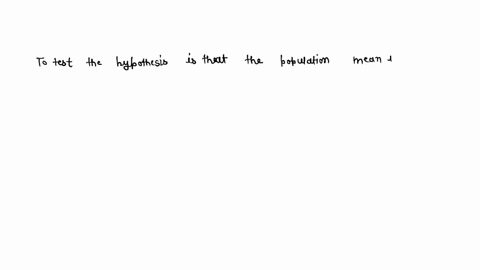 To test the hypothesis is that the population mean